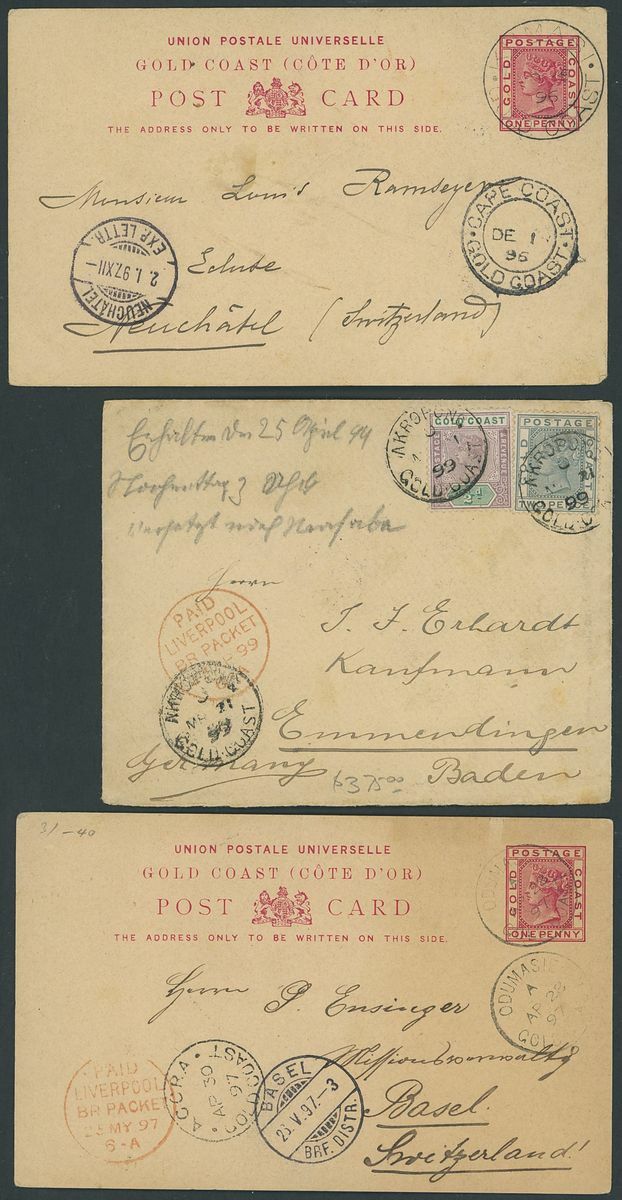 UNION POSTALE UNIVERSELLE
GOLD COAST (CÔTE D'OR)
POST CARD
THE ADDRESS ONLY TO BE WRITTEN ON THIS SIDE.
POSTAGE
GOLD COAST
ONE PENNY
96
COAST
Monsieur Louis Ramseyer
CAPE COAST
DE 1
96
GOLD COAST
NEUCHÂTEL
2.I.97.XII–
EXP. LETTR.
Ecluse
Neuchâtel (Switzerland)
Erhalten den 25 April
GOLD COAST
POSTAGE
½d
TWO PENCE
AKROPONG
99
GOLD COAST
AKROPO
99
GOLD CO
Herrn
PAID
LIVERPOOL
BR PACKET
99
J. F. Erhardt
Kaufmann
Emmendingen
GOLD COAST
Germany Baden
637500
31-40
UNION POSTALE UNIVERSELLE
GOLD COAST (CÔTE D'OR)
POST CARD
THE ADDRESS ONLY TO BE WRITTEN ON THIS SIDE.
POSTAGE
GOLD COAST
ONE PENNY
ODUMAS
ODUMASE
A
AP 28
97
GOL
Herrn P. Ensinger
Missionsverwaltg
Basel.
Switzerland!
PAID
LIVERPOOL
BR PACKET
25 MY 97
6-A
ACCRA
AP 30
97
GOLD COAST
BASEL
23.V.97.–3
BRF. DISTR.